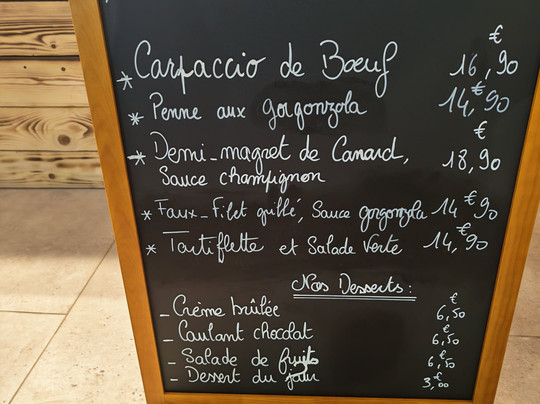 * Carpaccio de Bœuf 16€,90
* Penne aux gorgonzola 14€,90
* Demi-magret de Canard, 18€,90
Sauce champignon
* Faux-Filet grillé, Sauce gorgonzola 14€,90
* Tartiflette et Salade verte 14€,90
Nos Desserts :
- Crème brûlée 6€,50
- Coulant chocolat 6€,50
- Salade de fruits 6€,50
- Dessert du jour 3€,00